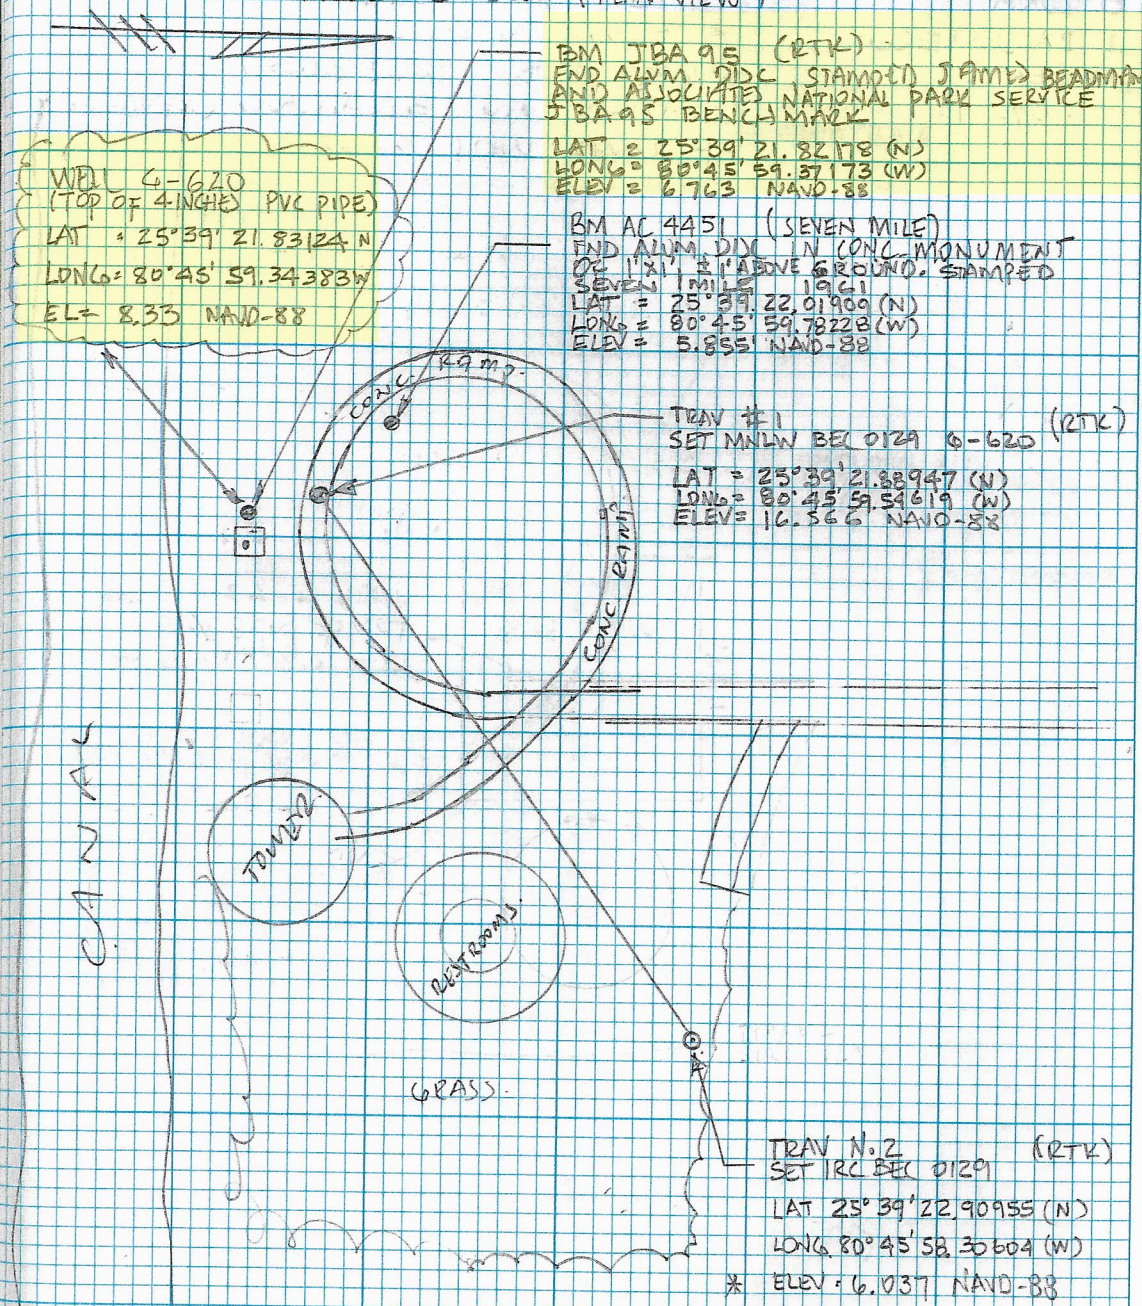 (PLAN VIEW)
BM JBA 95 (RTK)
FND ALUM. DISC STAMPED JAMES BEADMAN
AND ASSOCIATES NATIONAL PARK SERVICE
JBA 95 BENCHMARK
LAT = 25°39'21.82178 (N)
LONG = 80°45'59.37173 (W)
ELEV = 6.763 NAVD-88
WELL G-620
(TOP OF 4 INCHES PVC PIPE)
LAT = 25°39' 21.83124 N
LONG = 80°45' 59.34383 W
EL = 8.33 NAVD-88
BM AC 4451 (SEVEN MILE)
FND ALUM. DISC IN CONC. MONUMENT
OF 1'X1', ±1' ABOVE GROUND. STAMPED
SEVEN MILE 1961
LAT = 25°39'22.01909 (N)
LONG = 80°45'59.78228 (W)
ELEV = 5.855' NAVD-88
CONC. RAMP.
TRAV #1 (RTK)
SET MNLW BEC 0129 G-620
LAT = 25°39'21.88947 (N)
LONG = 80°45'59.54619 (W)
ELEV = 16.566 NAVD-88
CONC RAMP
CANAL
TOWER.
RESTROOMS.
GRASS.
TRAV N.2 (RTK)
SET IRC BEC 0129
LAT 25°39'22.90955 (N)
LONG. 80°45'58.30604 (W)
* ELEV = 6.037 NAVD-88